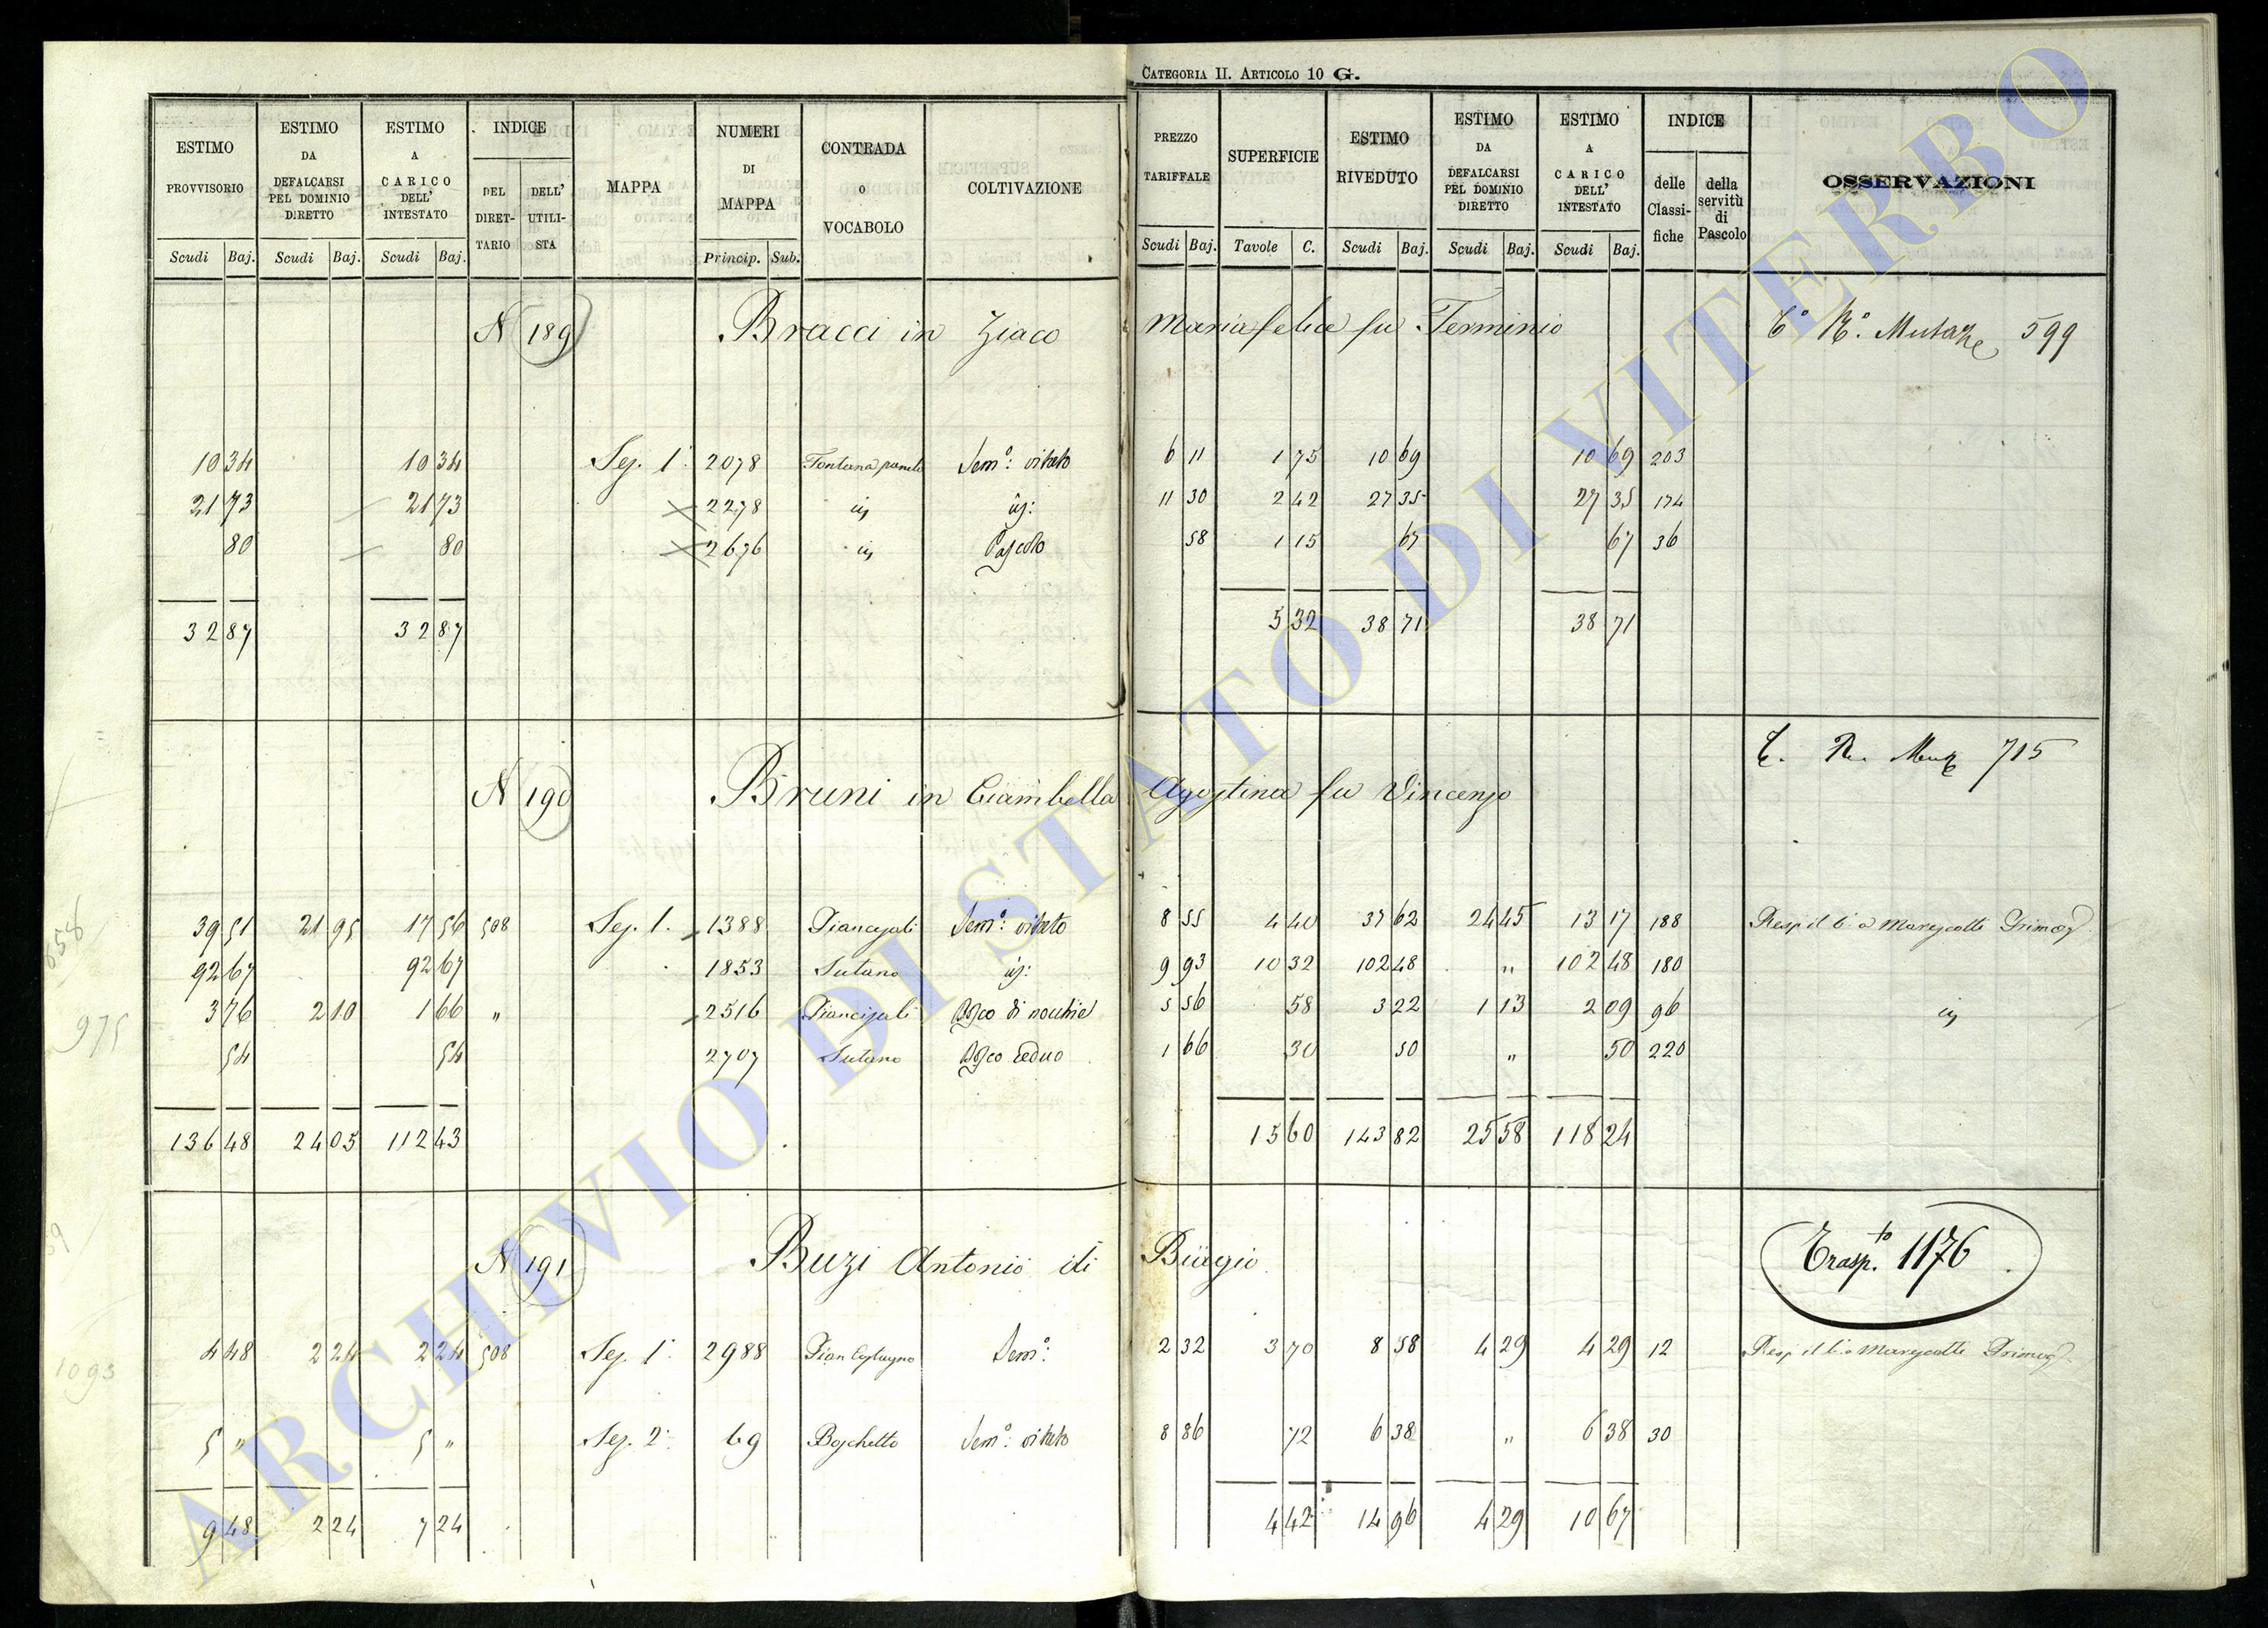 CATEGORIA II. ARTICOLO 10 G.
ESTIMO PROVVISORIO Scudi Baj.
ESTIMO DA DEFALCARSI PEL DOMINIO DIRETTO Scudi Baj.
ESTIMO A CARICO DELL' INTESTATO Scudi Baj.
INDICE DEL DIRET-TARIO DELL' UTILI-STA
MAPPA
NUMERI DI MAPPA Princip. Sub.
CONTRADA O VOCABOLO
COLTIVAZIONE
PREZZO TARIFFALE Scudi Baj.
SUPERFICIE Tavole C.
ESTIMO RIVEDUTO Scudi Baj.
ESTIMO DA DEFALCARSI PEL DOMINIO DIRETTO Scudi Baj.
ESTIMO A CARICO DELL' INTESTATO Scudi Baj.
INDICE delle Classi-fiche della servitù di Pascolo
OSSERVAZIONI
N 189 Bracci in Ziaco Maria felice fu Terminio 599
10 34 10 34 Sez. 1. 2078 Fontana Semo: vitato 6 11 1 75 10 69 10 69 203
21 73 21 73 2278 11 30 2 42 27 35 27 35 174
80 80 2676 Pascolo 58 1 15 67 67 36
32 87 32 87 5 32 38 71 38 71
N 190 Bruni in Ciambella Agostina fu Vincenzo 715
39 51 21 95 17 56 508 Sez. 1. 1388 Semo: vitato 8 55 4 40 37 62 24 45 13 17 188
92 67 92 67 1853 Sutano 9 93 10 32 102 48 " 102 48 180
3 76 2 10 1 66 " 2516 Bosco di nocchie 5 56 58 3 22 1 13 2 09 96
54 54 2707 Sutano Bosco ceduo 1 66 30 50 " 50 220
136 48 24 05 112 43 15 60 143 82 25 58 118 24
N 191 Buzi Antonio di Biagio Trasp.to 1176
4 48 2 24 2 24 508 Sez. 1. 2988 Semo: 2 32 3 70 8 58 4 29 4 29 12
5 " 5 " Sez. 2. 69 Boschetto Semo: vitato 8 86 72 6 38 " 6 38 30
9 48 2 24 7 24 4 42 14 96 4 29 10 67
658
975
1093
ARCHIVIO DI STATO DI VITERBO